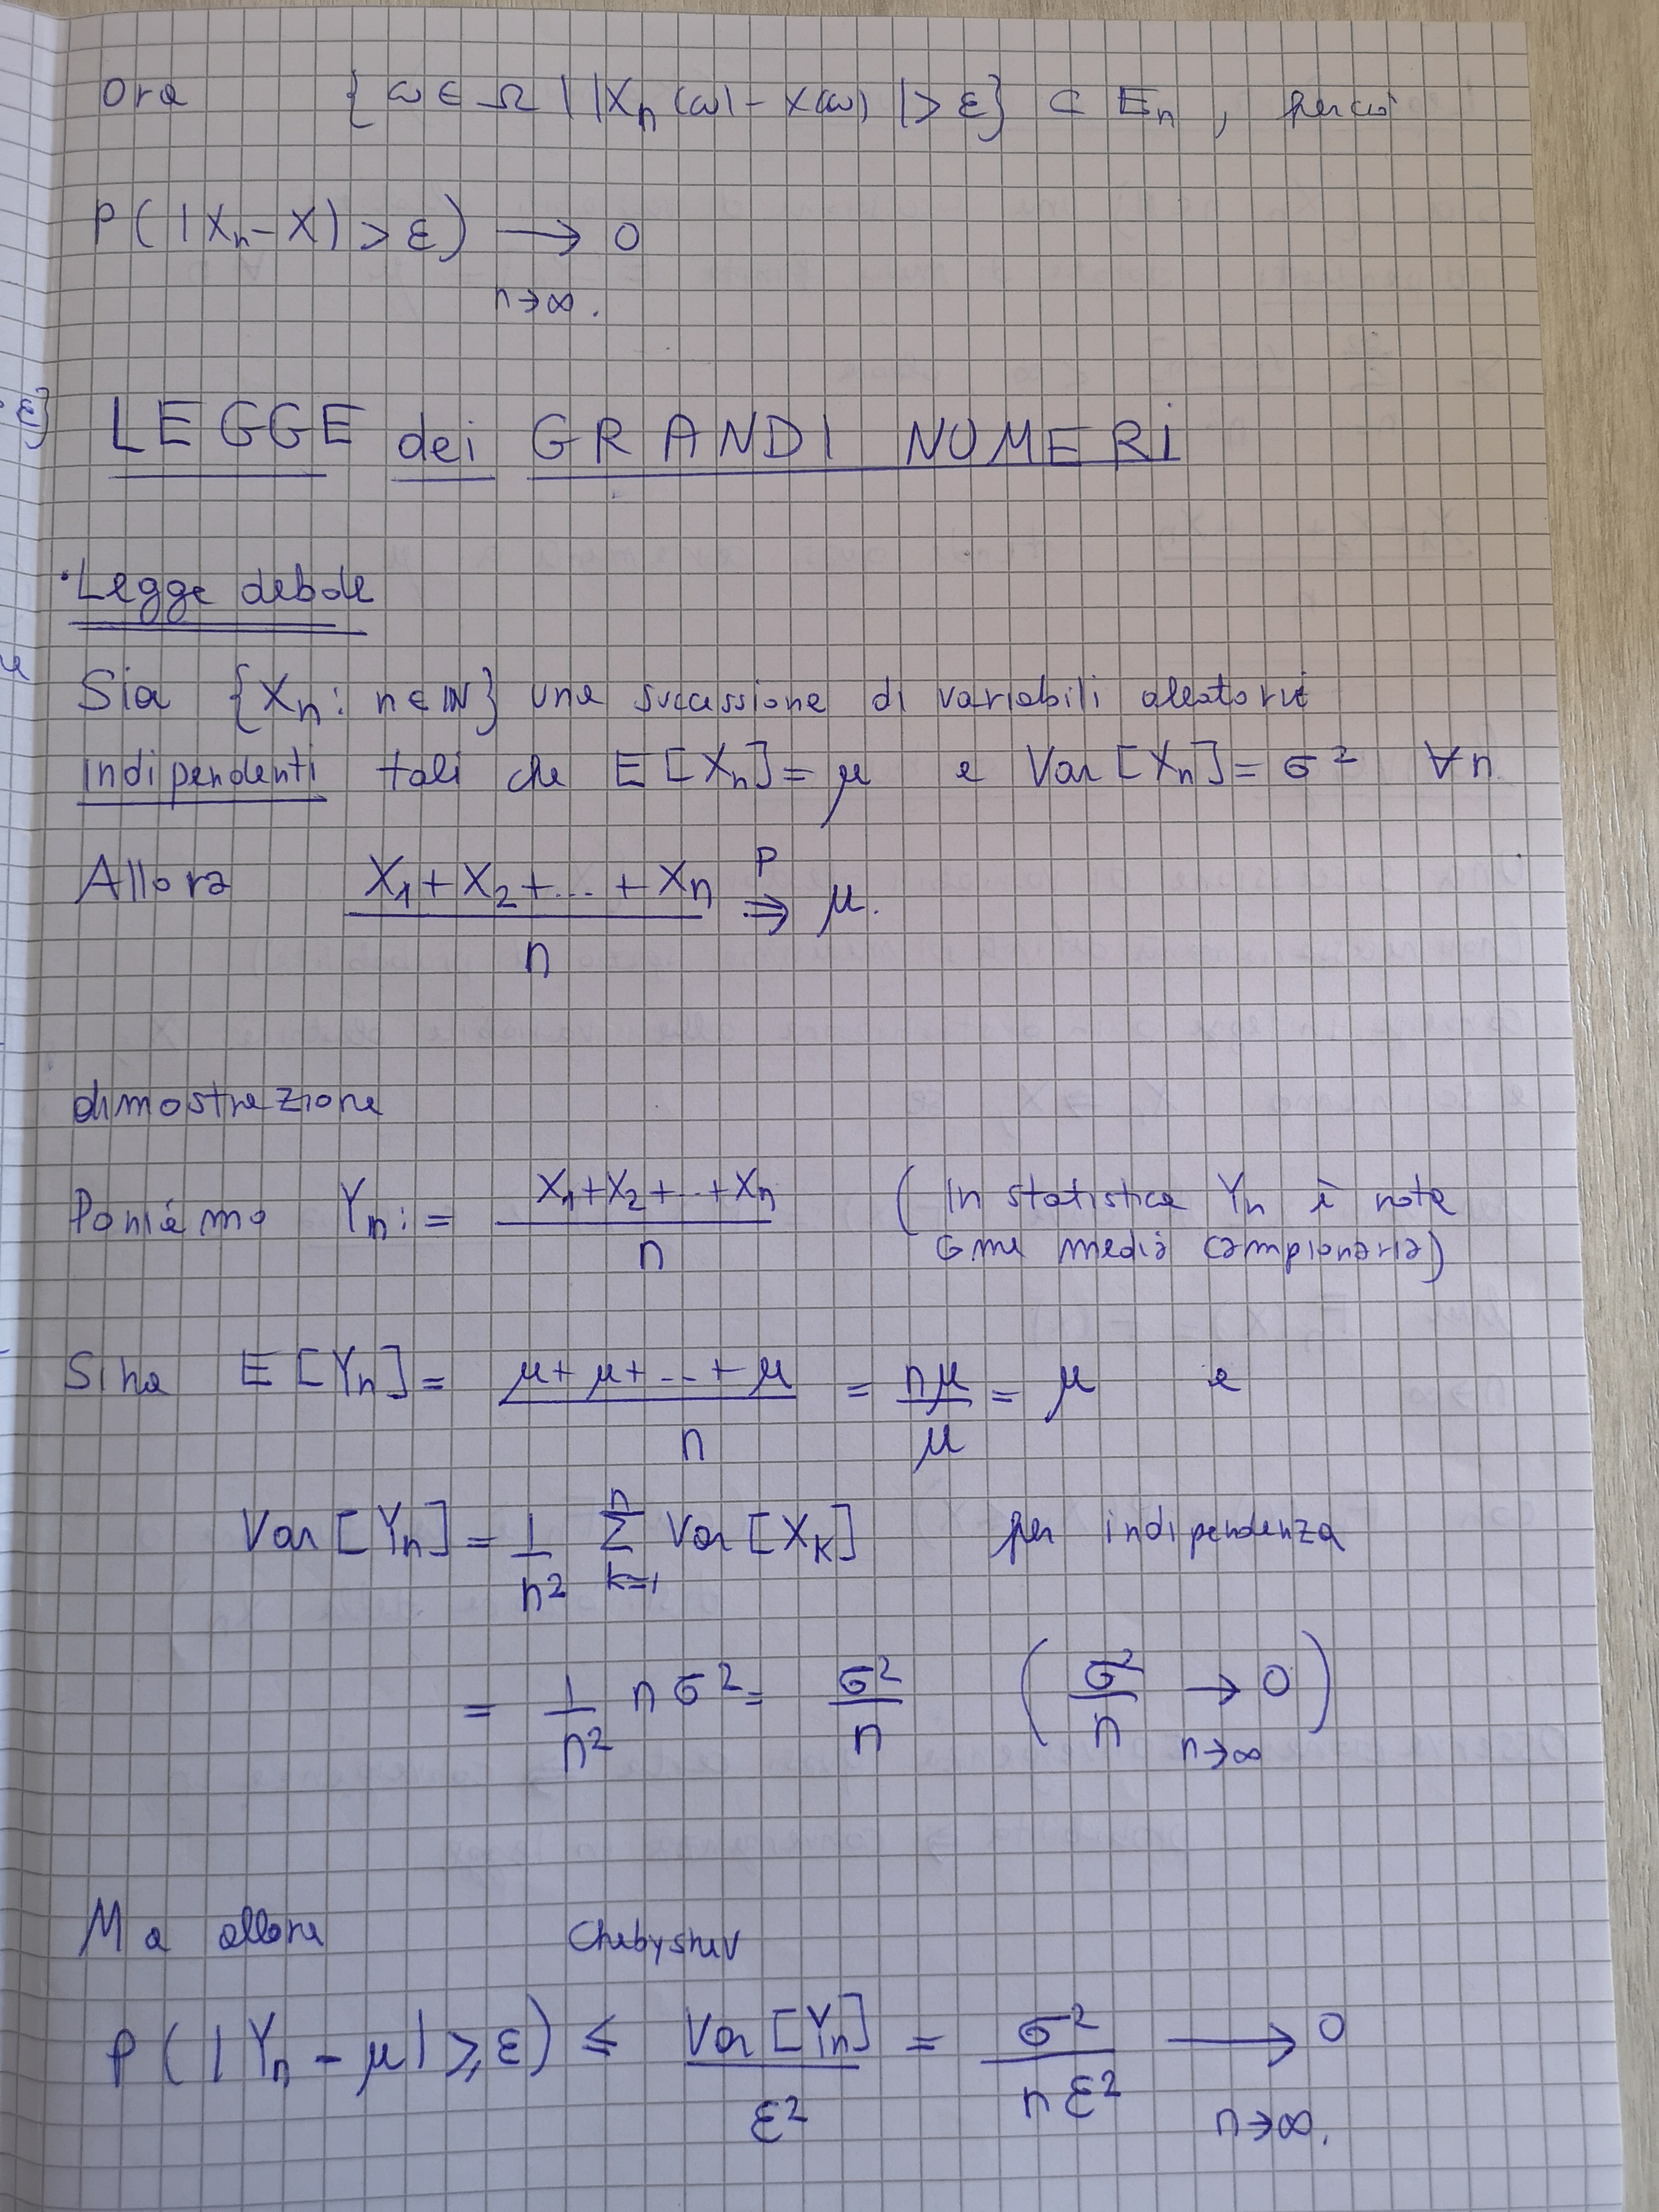 Ora {ω ∈ Ω | |Xn(ω) - X(ω)| > ε} ⊂ En, perciò
P(|Xn - X) > ε) → 0
n→∞.
ε}
LEGGE dei GRANDI NUMERI
• Legge debole
Sia {Xn: n ∈ ℕ} una successione di variabili aleatorie
indipendenti tali che E[Xn] = μ e Var[Xn] = σ² ∀n
Allora (X1 + X2 + ... + Xn)/n ⇒^P μ.
dimostrazione
Poniamo Yn := (X1 + X2 + ... + Xn)/n (In statistica Yn è nota
come media campionaria)
Si ha E[Yn] = (μ + μ + ... + μ)/n = nμ/μ = μ e
Var[Yn] = 1/n² ∑_{k=1}^{n} Var[Xk] per indipendenza
= 1/n² n σ² = σ²/n (σ²/n → 0 n→∞)
Ma allora Chebyshev
P(|Yn - μ| ≥ ε) ≤ Var[Yn]/ε² = σ²/(n ε²) → 0
n→∞.